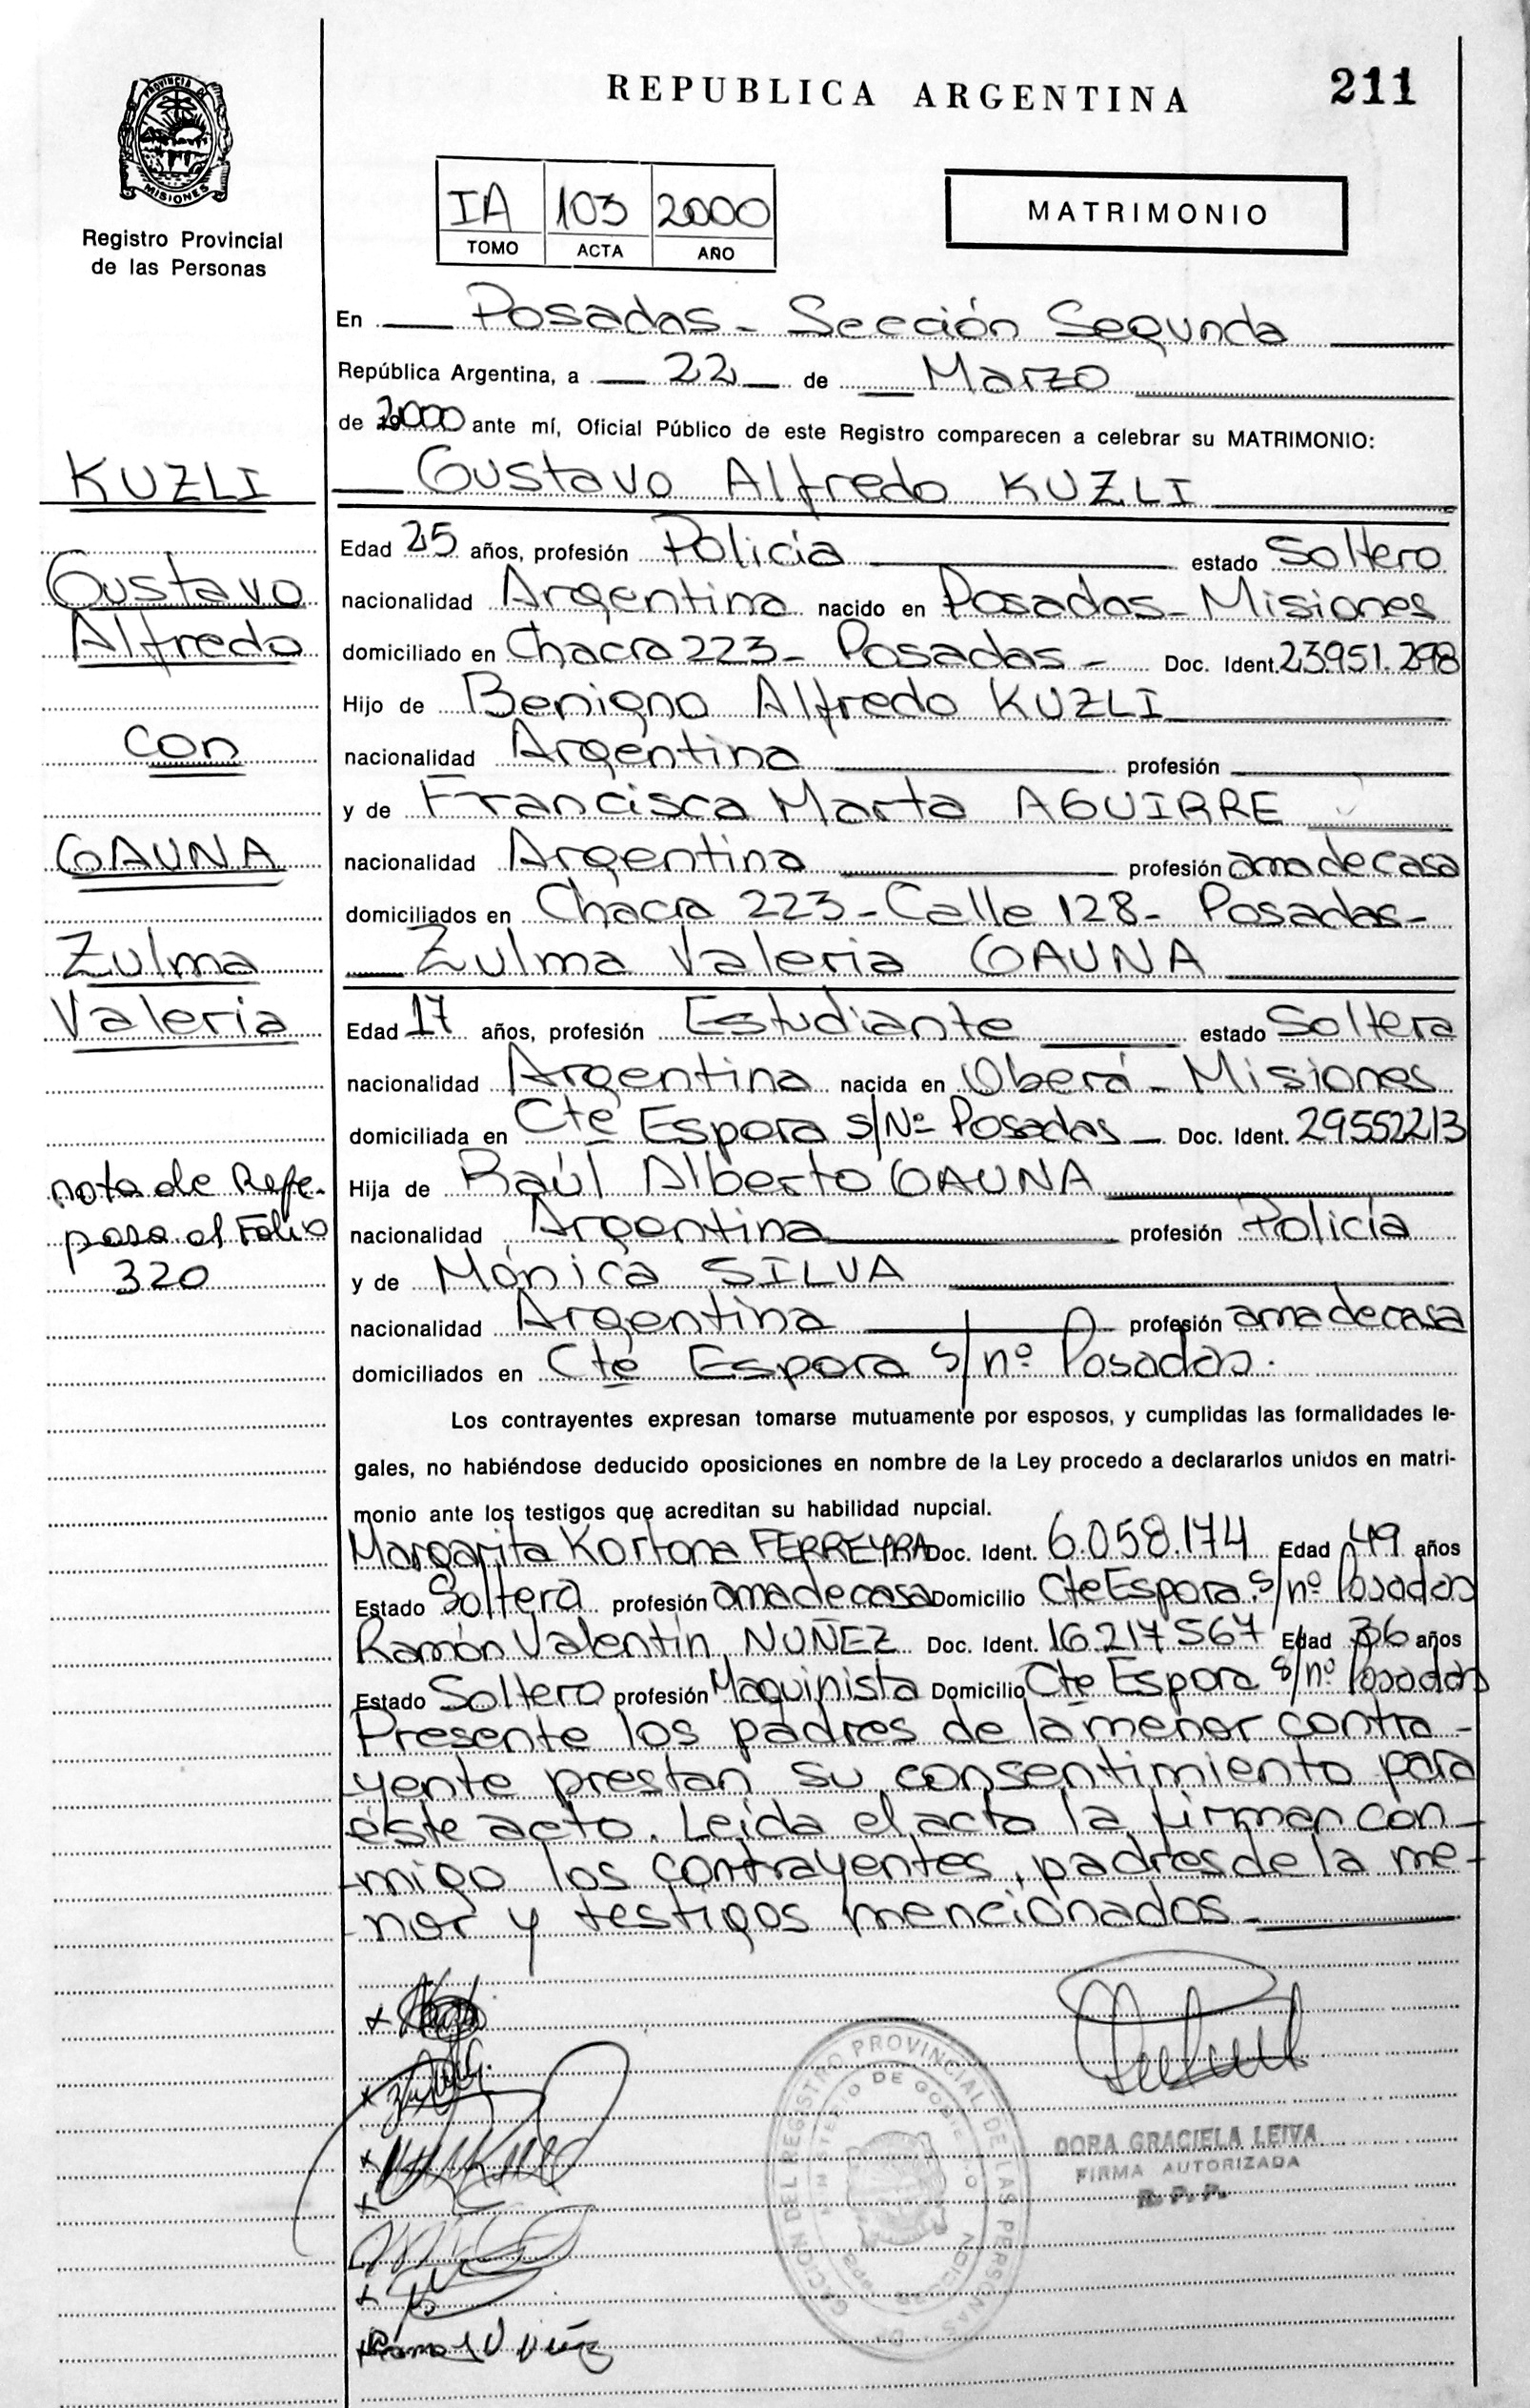 REPUBLICA ARGENTINA
211
PROVINCIA DE
MISIONES
Registro Provincial
de las Personas
IA 103 2000
TOMO ACTA AÑO
MATRIMONIO
En Posadas - Sección Segunda
República Argentina, a 22 de Marzo
de 2000 ante mí, Oficial Público de este Registro comparecen a celebrar su MATRIMONIO:
Gustavo Alfredo KUZLI
KUZLI
Gustavo
Alfredo
con
GAUNA
Zulma
Valeria
nota de Refe.
pasa al Folio
320
Edad 25 años, profesión Policía estado Soltero
nacionalidad Argentina nacido en Posadas - Misiones
domiciliado en Chacra 223 - Posadas - Doc. Ident. 23951.298
Hijo de Benigno Alfredo KUZLI
nacionalidad Argentina profesión
y de Francisca Marta AGUIRRE
nacionalidad Argentina profesión ama de casa
domiciliados en Chacra 223 - Calle 128 - Posadas -
Zulma Valeria GAUNA
Edad 17 años, profesión Estudiante estado Soltera
nacionalidad Argentina nacida en Oberá - Misiones
domiciliada en Cte Espora s/Nº Posadas - Doc. Ident. 29552213
Hija de Raúl Alberto GAUNA
nacionalidad Argentina profesión Policía
y de Mónica SILVA
nacionalidad Argentina profesión ama de casa
domiciliados en Cte Espora s/nº Posadas.
Los contrayentes expresan tomarse mutuamente por esposos, y cumplidas las formalidades le-
gales, no habiéndose deducido oposiciones en nombre de la Ley procedo a declararlos unidos en matri-
monio ante los testigos que acreditan su habilidad nupcial.
Margarita Kortona FERREYRA Doc. Ident. 6.058.174 Edad 49 años
Estado Soltera profesión ama de casa Domicilio Cte Espora s/nº Posadas
Ramón Valentín NUÑEZ Doc. Ident. 16.217567 Edad 36 años
Estado Soltero profesión Maquinista Domicilio Cte Espora s/nº Posadas
Presente los padres de la menor contra-
yente prestan su consentimiento para
éste acto. Leída el acta la firman con-
-migo los contrayentes, padres de la me-
-nor y testigos mencionados -
DORA GRACIELA LEIVA
FIRMA AUTORIZADA
R. P. P.
REGISTRO PROVINCIAL DE LAS PERSONAS